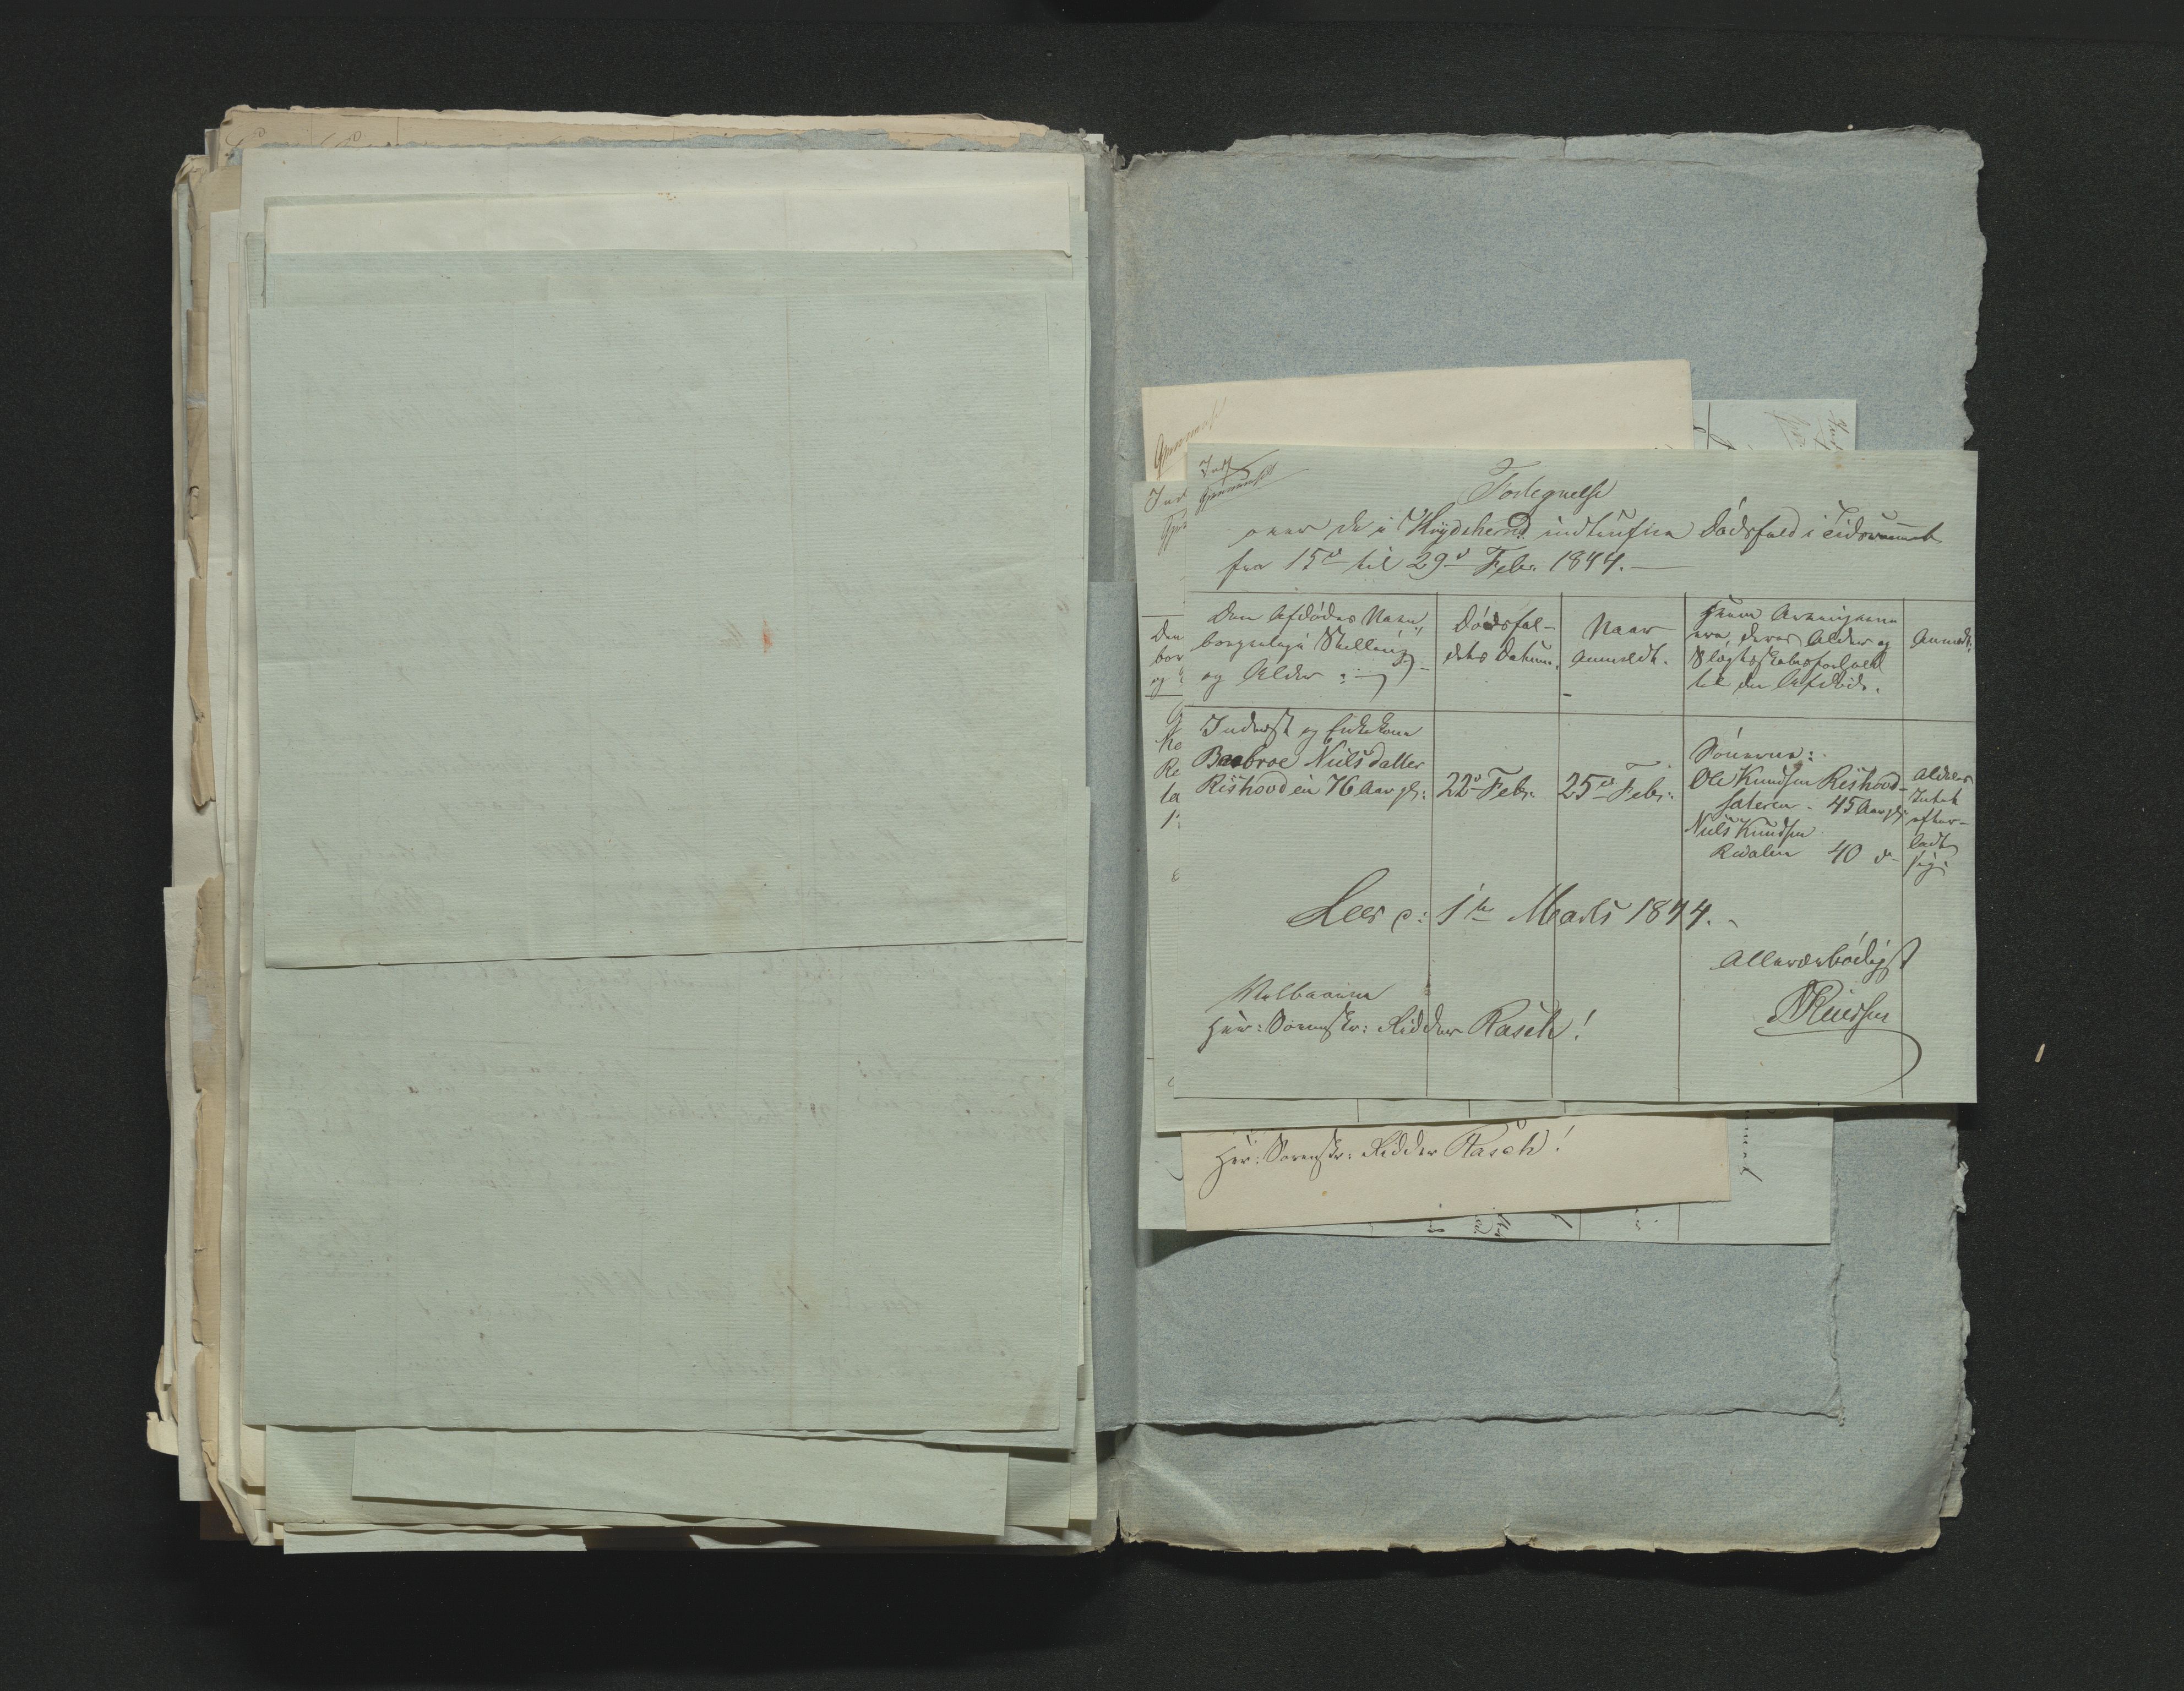 Indf.
Gjennemseet
Fortegnelse
over de i Krydsherred indtrufne Dødsfald i Tidsrummet
fra 15de til 29de Febr. 1844.
Den Afdødes Navn,
borgerlige Stilling
og Alder
Dødsfal-
dets Datum.
Naar
anmeldt.
Hvem Arvingerne
ere, deres Alder og
Slægtskabsforhold
til den Afdøde.
Anmærk:
Inderst og Enkekone
Barbroe Nielsdatter
Rishovdein 76 Aar gl:
22de Febr.
25de Febr.
Sønnerne:
Ole Knudsen Rishovd-
sæteren - 45 Aar gl:
Niels Knudsen
Redalen 40 d
Aldeles
Intet
efter-
ladt
sig.
Lees d: 1te Marts 1844.
Allerærbødigst
Knudsen
Velbaarne
Herr: Sorenskr: Ridder Rasch!
Herr: Sorenskr: Ridder Rasch!
Gjennemseet
Ind
Den
bor
og